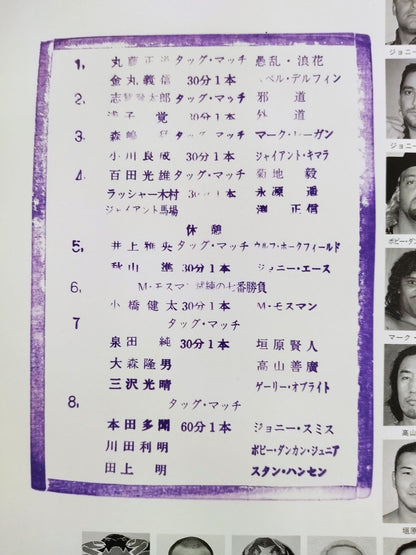 1, 丸藤正道 タッグ・マッチ 愚乱・浪花
金丸義信 30分1本 スペル・デルフィン
2, 志賀賢太郎 タッグ・マッチ 邪道
浅子覚 30分1本 外道
3, 森嶋 タッグ・マッチ マーク・ローガン
小川良成 30分1本 ジャイアント・キマラ
4, 百田光雄 タッグ・マッチ 菊地毅
ラッシャー木村 30分1本 永源遙
ジャイアント馬場 渕正信
休憩
5, 井上雅央 タッグ・マッチ ウルフ・ホークフィールド
秋山準 30分1本 ジョニー・エース
6, M・モスマン試練の七番勝負
小橋健太 30分1本 M・モスマン
7 タッグ・マッチ
泉田純 30分1本 垣原賢人
大森隆男 高山善廣
三沢光晴 ゲーリー・オブライト
8, タッグ・マッチ
本田多聞 60分1本 ジョニー・スミス
川田利明 ボビー・ダンカン・ジュニア
田上明 スタン・ハンセン
ジョニー
ジョニー
ボビー・ダン
マーク・
高山
垣原